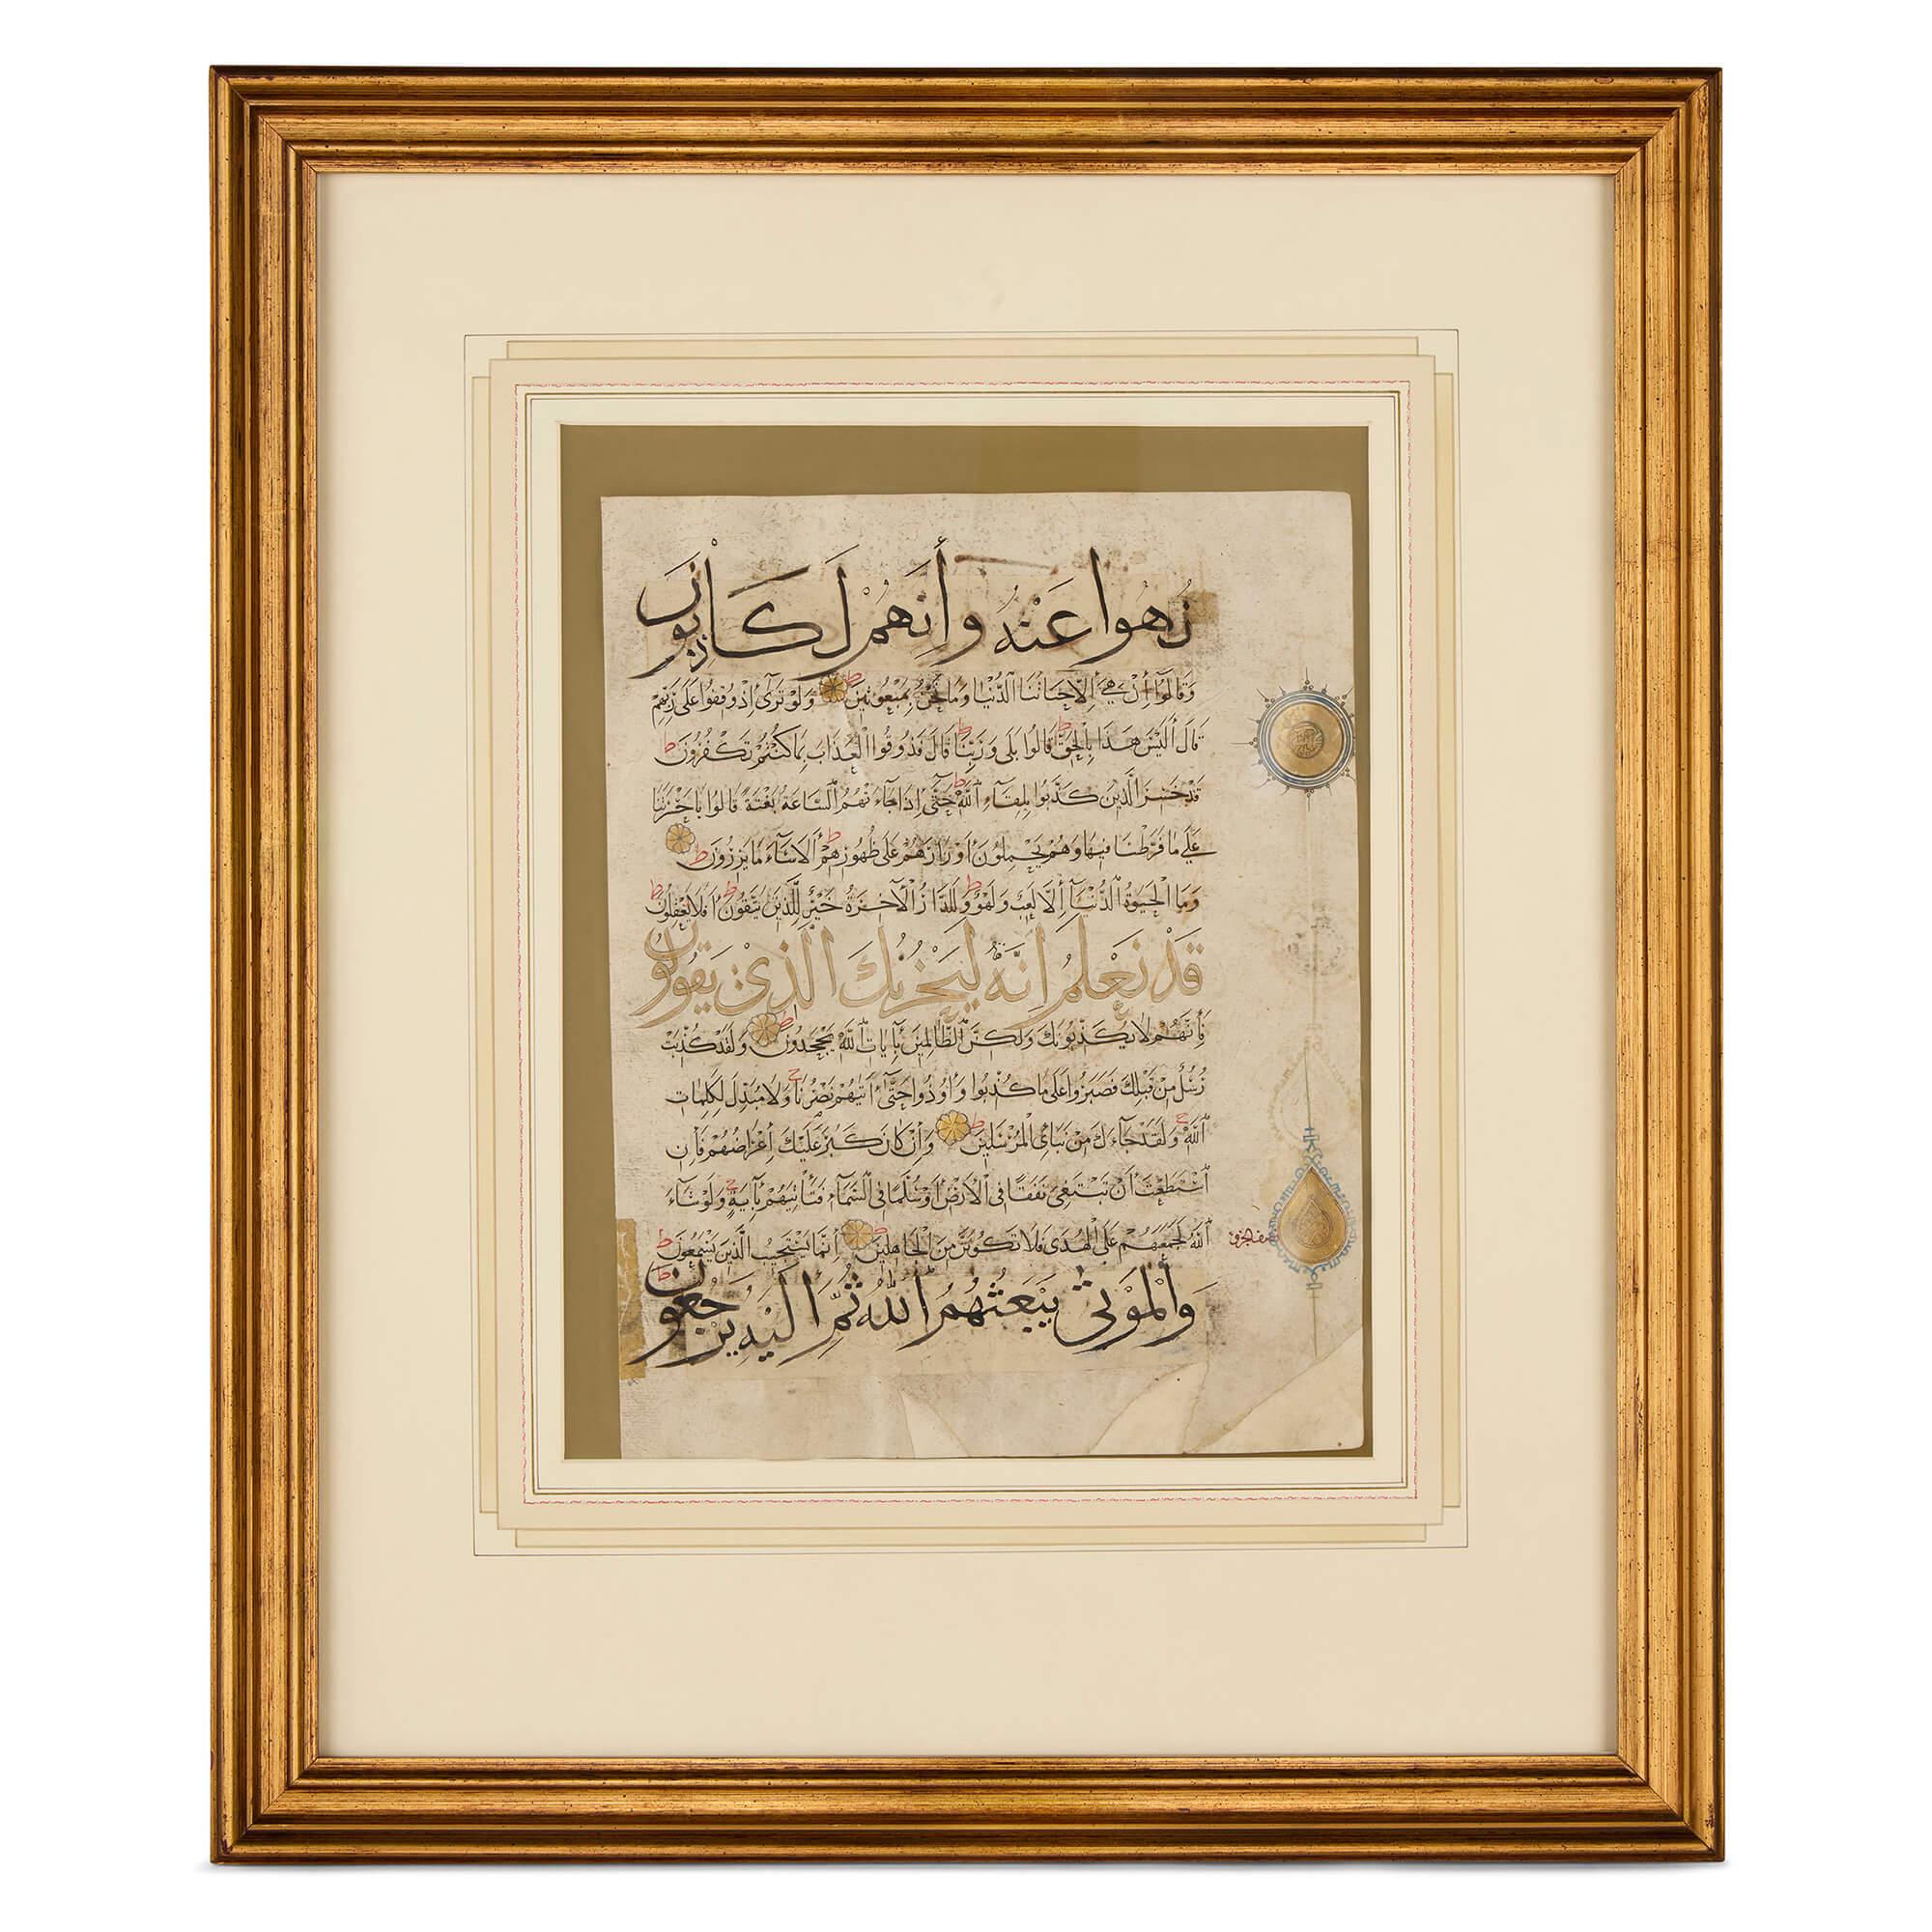 نُهُوا عَنْهُ وَأَنَّهُمْ لَكَاذِبُونَ
وَقَالُوا إِنْ هِيَ إِلَّا حَيَاتُنَا الدُّنْيَا وَمَا نَحْنُ بِمَبْعُوثِينَ ط وَلَوْ تَرَى إِذْ وُقِفُوا عَلَى رَبِّهِمْ
قَالَ أَلَيْسَ هَذَا بِالْحَقِّ ط قَالُوا بَلَى وَرَبِّنَا ط قَالَ فَذُوقُوا الْعَذَابَ بِمَا كُنْتُمْ تَكْفُرُونَ ط
قَدْ خَسِرَ الَّذِينَ كَذَّبُوا بِلِقَاءِ اللَّهِ ط حَتَّى إِذَا جَاءَتْهُمُ السَّاعَةُ بَغْتَةً قَالُوا يَا حَسْرَتَنَا
عَلَى مَا فَرَّطْنَا فِيهَا وَهُمْ يَحْمِلُونَ أَوْزَارَهُمْ عَلَى ظُهُورِهِمْ ط أَلَا سَاءَ مَا يَزِرُونَ ط
وَمَا الْحَيَوةُ الدُّنْيَا إِلَّا لَعِبٌ وَلَهْوٌ ط وَلَلدَّارُ الْآخِرَةُ خَيْرٌ لِلَّذِينَ يَتَّقُونَ ط أَفَلَا يَعْقِلُونَ ط
قَدْ نَعْلَمُ إِنَّهُ لَيَحْزُنُكَ الَّذِي يَقُولُونَ
فَإِنَّهُمْ لَا يُكَذِّبُونَكَ وَلَكِنَّ الظَّالِمِينَ بِآيَاتِ اللَّهِ يَجْحَدُونَ ط وَلَقَدْ كُذِّبَتْ
رُسُلٌ مِنْ قَبْلِكَ فَصَبَرُوا عَلَى مَا كُذِّبُوا وَأُوذُوا حَتَّى أَتَيهُمْ نَصْرُنَا ج وَلَا مُبَدِّلَ لِكَلِمَاتِ
اللَّهِ ج وَلَقَدْ جَاءَكَ مِنْ نَبَإِي الْمُرْسَلِينَ ط وَإِنْ كَانَ كَبُرَ عَلَيْكَ إِعْرَاضُهُمْ فَإِنِ
اسْتَطَعْتَ أَنْ تَبْتَغِيَ نَفَقًا فِي الْأَرْضِ أَوْ سُلَّمًا فِي السَّمَاءِ فَتَأْتِيَهُمْ بِآيَةٍ ج وَلَوْ شَاءَ
اللَّهُ لَجَمَعَهُمْ عَلَى الْهُدَى فَلَا تَكُونَنَّ مِنَ الْجَاهِلِينَ ط إِنَّمَا يَسْتَجِيبُ الَّذِينَ يَسْمَعُونَ ط
وَالْمَوْتَى يَبْعَثُهُمُ اللَّهُ ثُمَّ إِلَيْهِ يُرْجَعُونَ ط